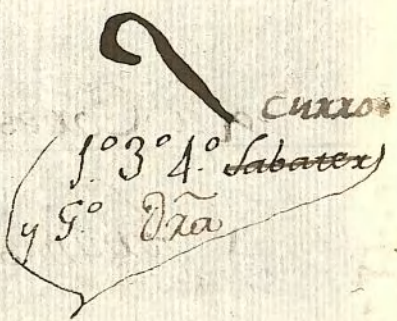 Curro
1.º 3.º 4.º Sabater
y 5.º Dr̃a